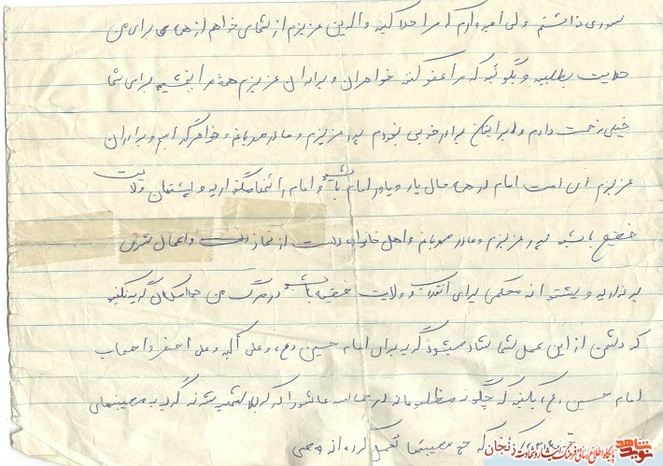 سودی نداشتم ولی امیدوارم که مرا حلال کنید والدین عزیزم از شما می خواهم از همه برای من
حلالیت بطلبید و بگوئید که مرا عفو کنند خواهران و برادران عزیزم همه مرا ببخشید برای شما
خیلی زحمت دارم و برایتان برادر خوبی نبودم پدر عزیزم و مادر مهربانم و خواهر گرامیم و برادران
عزیزم ای امت امام در همه حال یار و یاور امام باشید و امام را تنها مگذارید و پشتیبان ولایت
فقیه باشید پدر عزیزم و مادر مهربانم و اهل خانواده دست از نماز و اعمال
بر ندارید و پشتوانه محکمی برای انقلاب و ولایت فقیه باشید در مرگ من خواهشمندم گریه نکنید
که دشمن از این عمل شما شاد میشود گریه برای امام حسین (ع) و علی اکبر و علی اصغر و اصحاب
امام حسین (ع) بکنید که چگونه مظلومانه در عاشورا که کربلا شهید شدند گریه به مصیبتهای
که چه مصیبتها تحمل کرده از
نوید شاهد
پایگاه اطلاع رسانی فرهنگ ایثار و شهادت زنجان